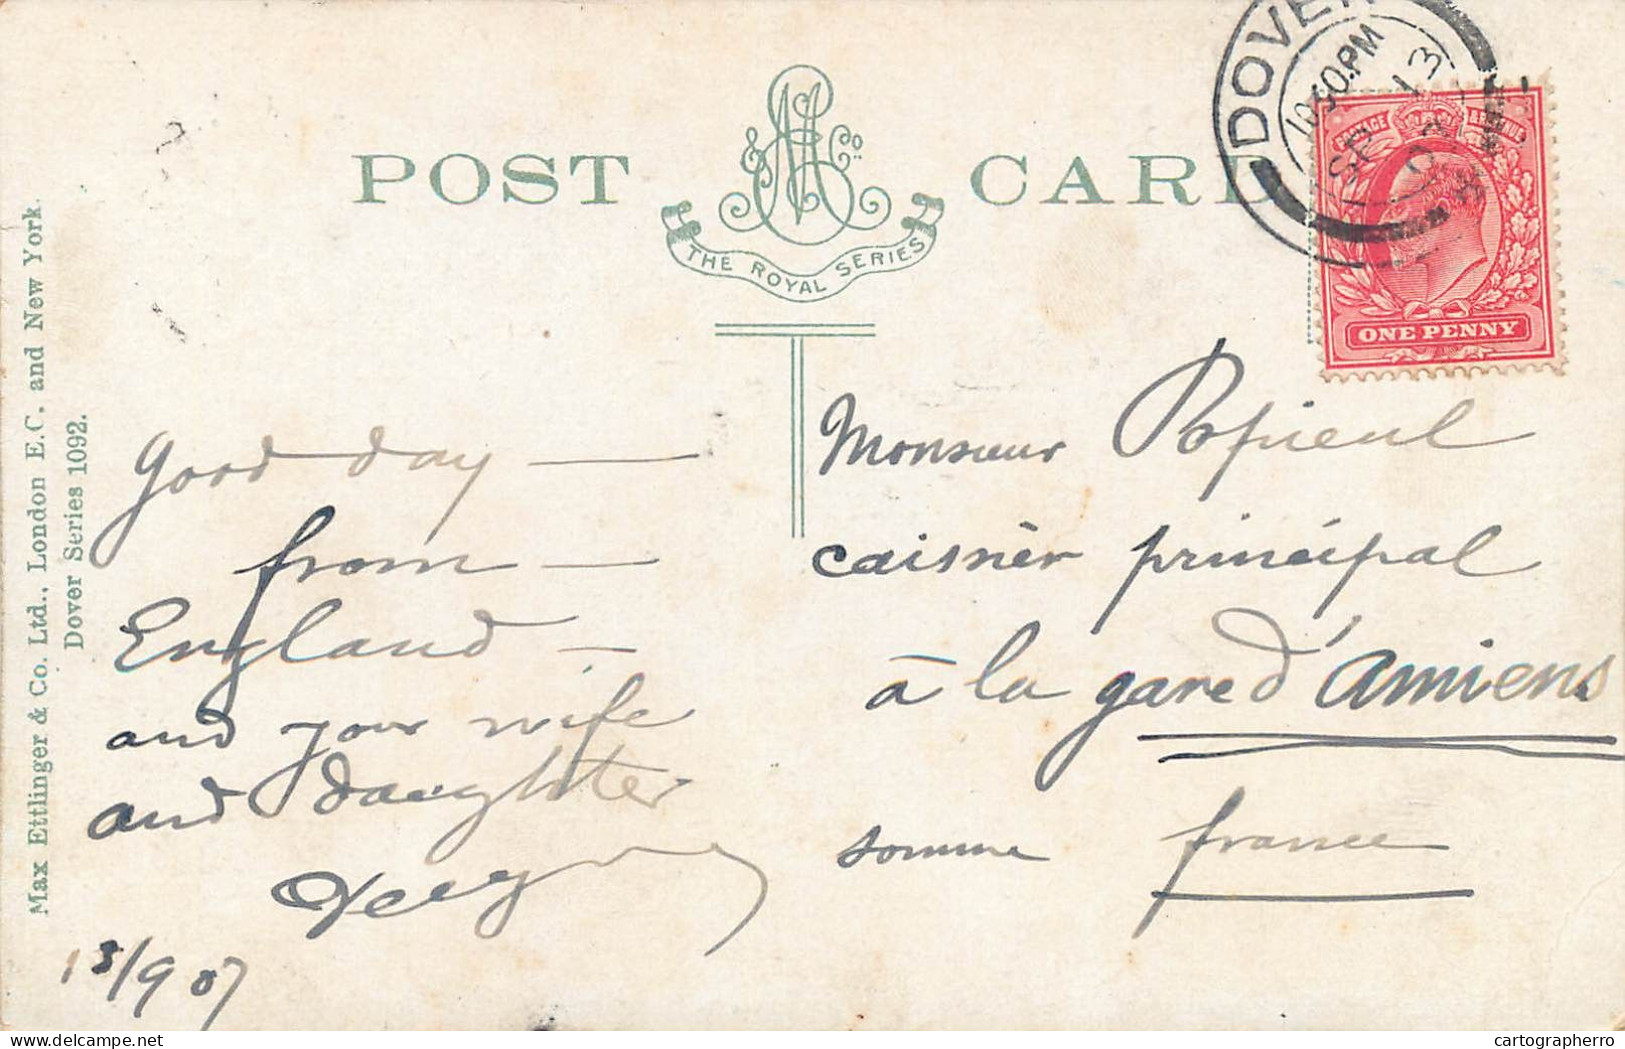 POST CARD
& Co.
THE ROYAL SERIES
DOVER
10.30.PM
SP 13
07
POSTAGE REVENUE
ONE PENNY
Max Ettlinger & Co. Ltd., London E.C. and New York.
Dover Series 1092.
good day —
from —
England —
and your wife
and daughter
13/9 07
Monsieur Popieul
caissier principal
à la gare d'amiens
somme france
cartographerro